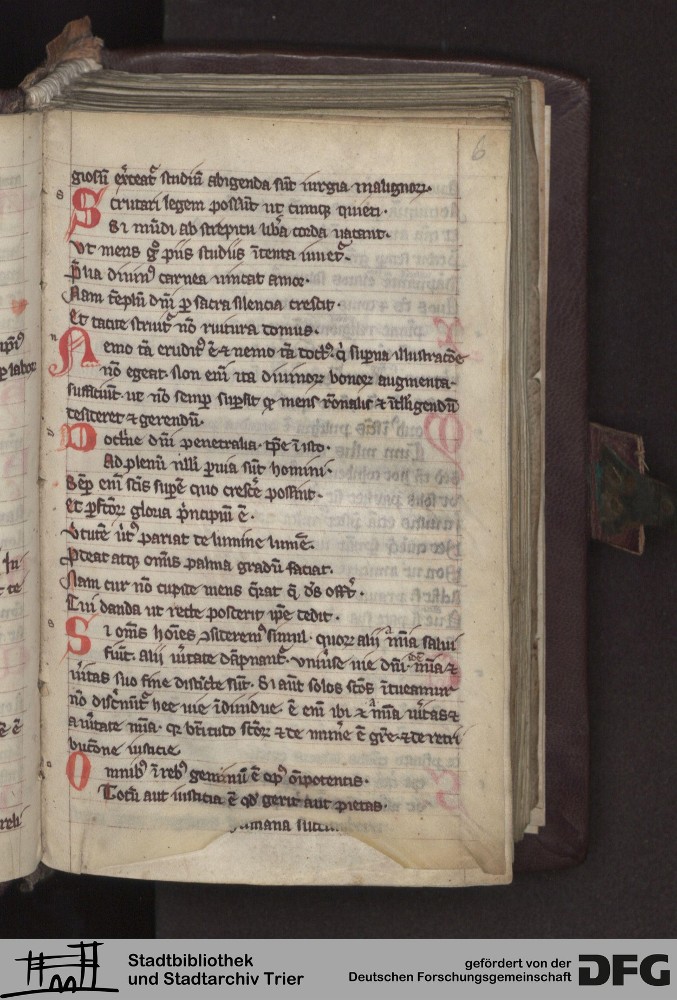 6
giosũ exͨeat᷑ studiũ abigenda sũt iurgia malignoꝝ.
Scrutari legem possũt ut cunctꝫ quieti.
Si mũdi ab strepitu libͣa corda uacant.
Vt mens gͦ piis studiis ĩtenta iuuet᷑.
ꝑ lia diuinꝰ carnea uincat amor.
Nam tẽplũ dñi ꝑ sacra silencia crescit.
Et tacite struit᷑ nõ ruitura domus.
Nemo tã eruditꝰ ẽ ⁊ nemo tã doctꝰ. qͥ supͥna illustracõe
nõ egeat. Non eni ita diuinoꝝ bonoꝝ augmenta
sufficiũt. ut nõ semꝑ suꝑsit qͦ mens rõnalis ⁊ ĩtelligendũ
desideret ⁊ gerendũ.
Doctͥne dñi penetralia. tꝑe ĩ isto.
Ad plenũ nulli ꝑuia sũt homini.
Sẽꝑ eni scis suꝑẽ quo cresce᷑ possint.
Et ꝑfc̃oꝝ gloria pͥncipiũ ẽ.
Vtutẽ uͥtꝰ pariat de lumine lumẽ.
Pdeat atqꝫ om̃is palma gradũ faciat.
Nam cur nõ cupide mens q̃rat qͥ d̃s offt᷑.
Cui danda ut recte posceret ip̃e dedit.
Si om̃s hoĩes ꝯsideremꝰ simul. quoꝝ alii ꝑ mĩa salui
fiũt. alii uͥtate dãpnant᷑. vniũse uie dñi. id ẽ mĩa ⁊
uͥitas suo fine distͥcte sũt. Si aũt solos sc̃os ĩtueamur
nõ discͥnũt᷑ hee uie ĩdiuidue ẽ eni ibi ⁊ a mĩa uͥitas ⁊
a uͥitate mĩa. qꝛ bt̃itudo sc̃oꝝ ⁊ de munͥe ẽ gr̃e. ⁊ de retri
bucõne iusticie
Omnibꝰ ĩ rebꝰ geminũ ẽ opꝰ oĩpotentis.
Totũ aut iusticia ẽ qd̕ gerit aut pietas.
Stadtbibliothek
und Stadtarchiv Trier
gefördert von der
Deutschen Forschungsgemeinschaft
DFG